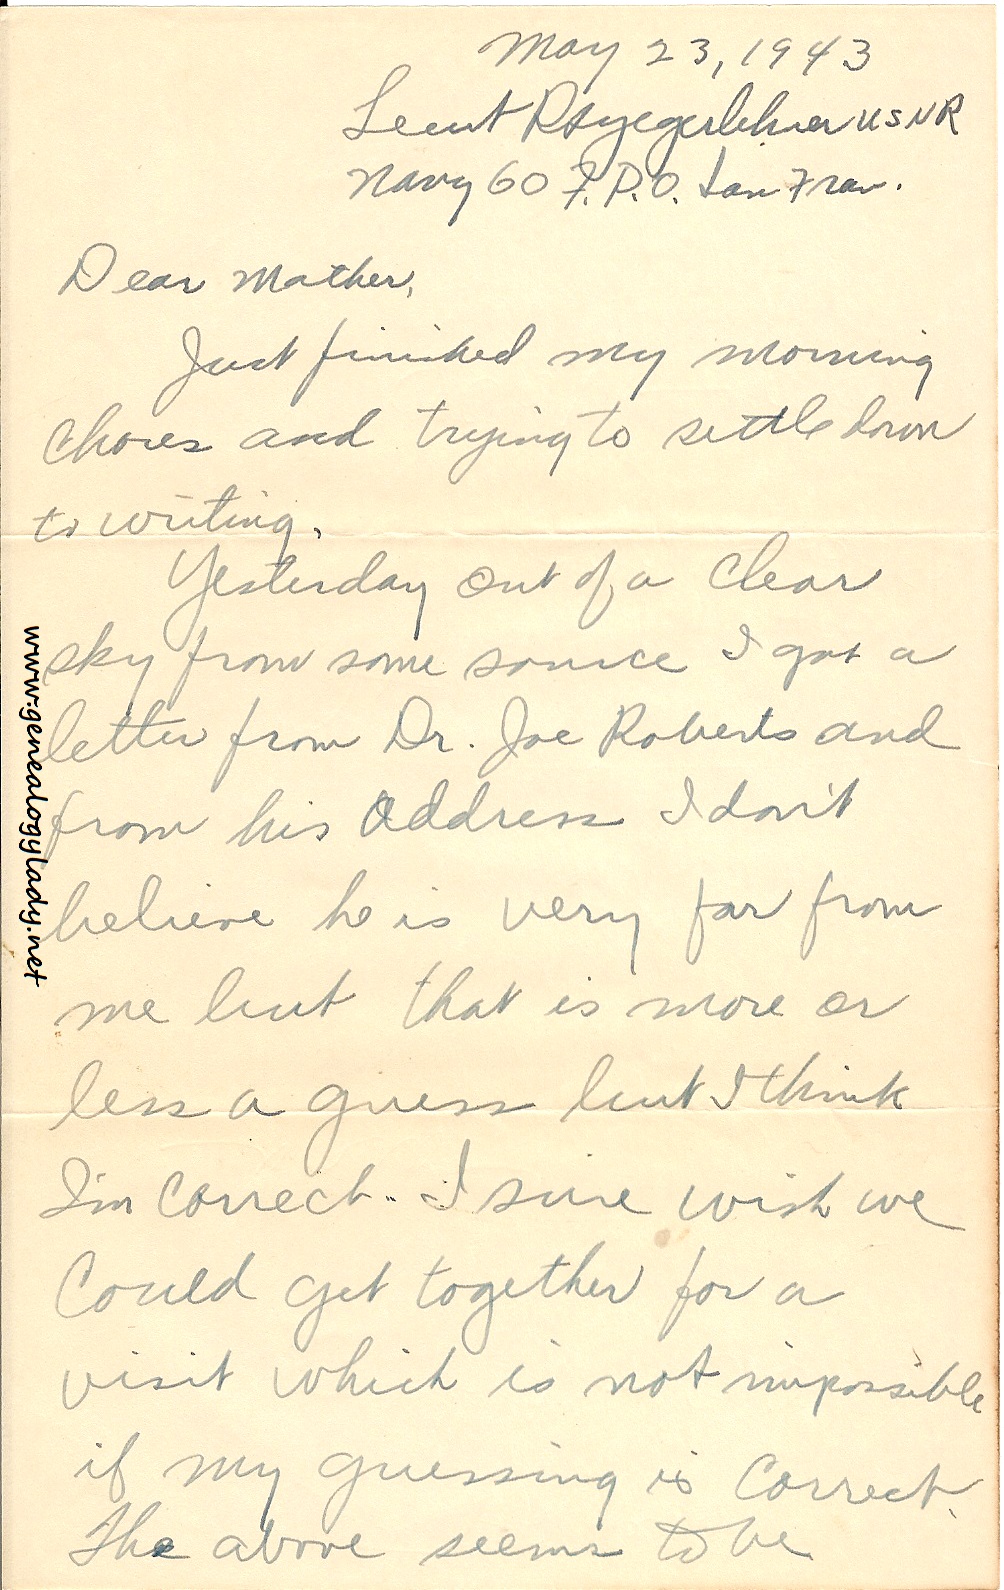 May 23, 1943
Lieut R S Yegerlehner USNR
Navy 60 F.P.O. San Fran.
Dear Mother,
Just finished my morning
chores and trying to settle down
to writing.
Yesterday out of a clear
sky from some source I got a
letter from Dr. Joe Roberts and
from his address I don't
believe he is very far from
me but that is more or
less a guess but I think
I'm correct. I sure wish we
could get together for a
visit which is not impossible
if my guessing is correct.
The above seems to be
www.genealogylady.net